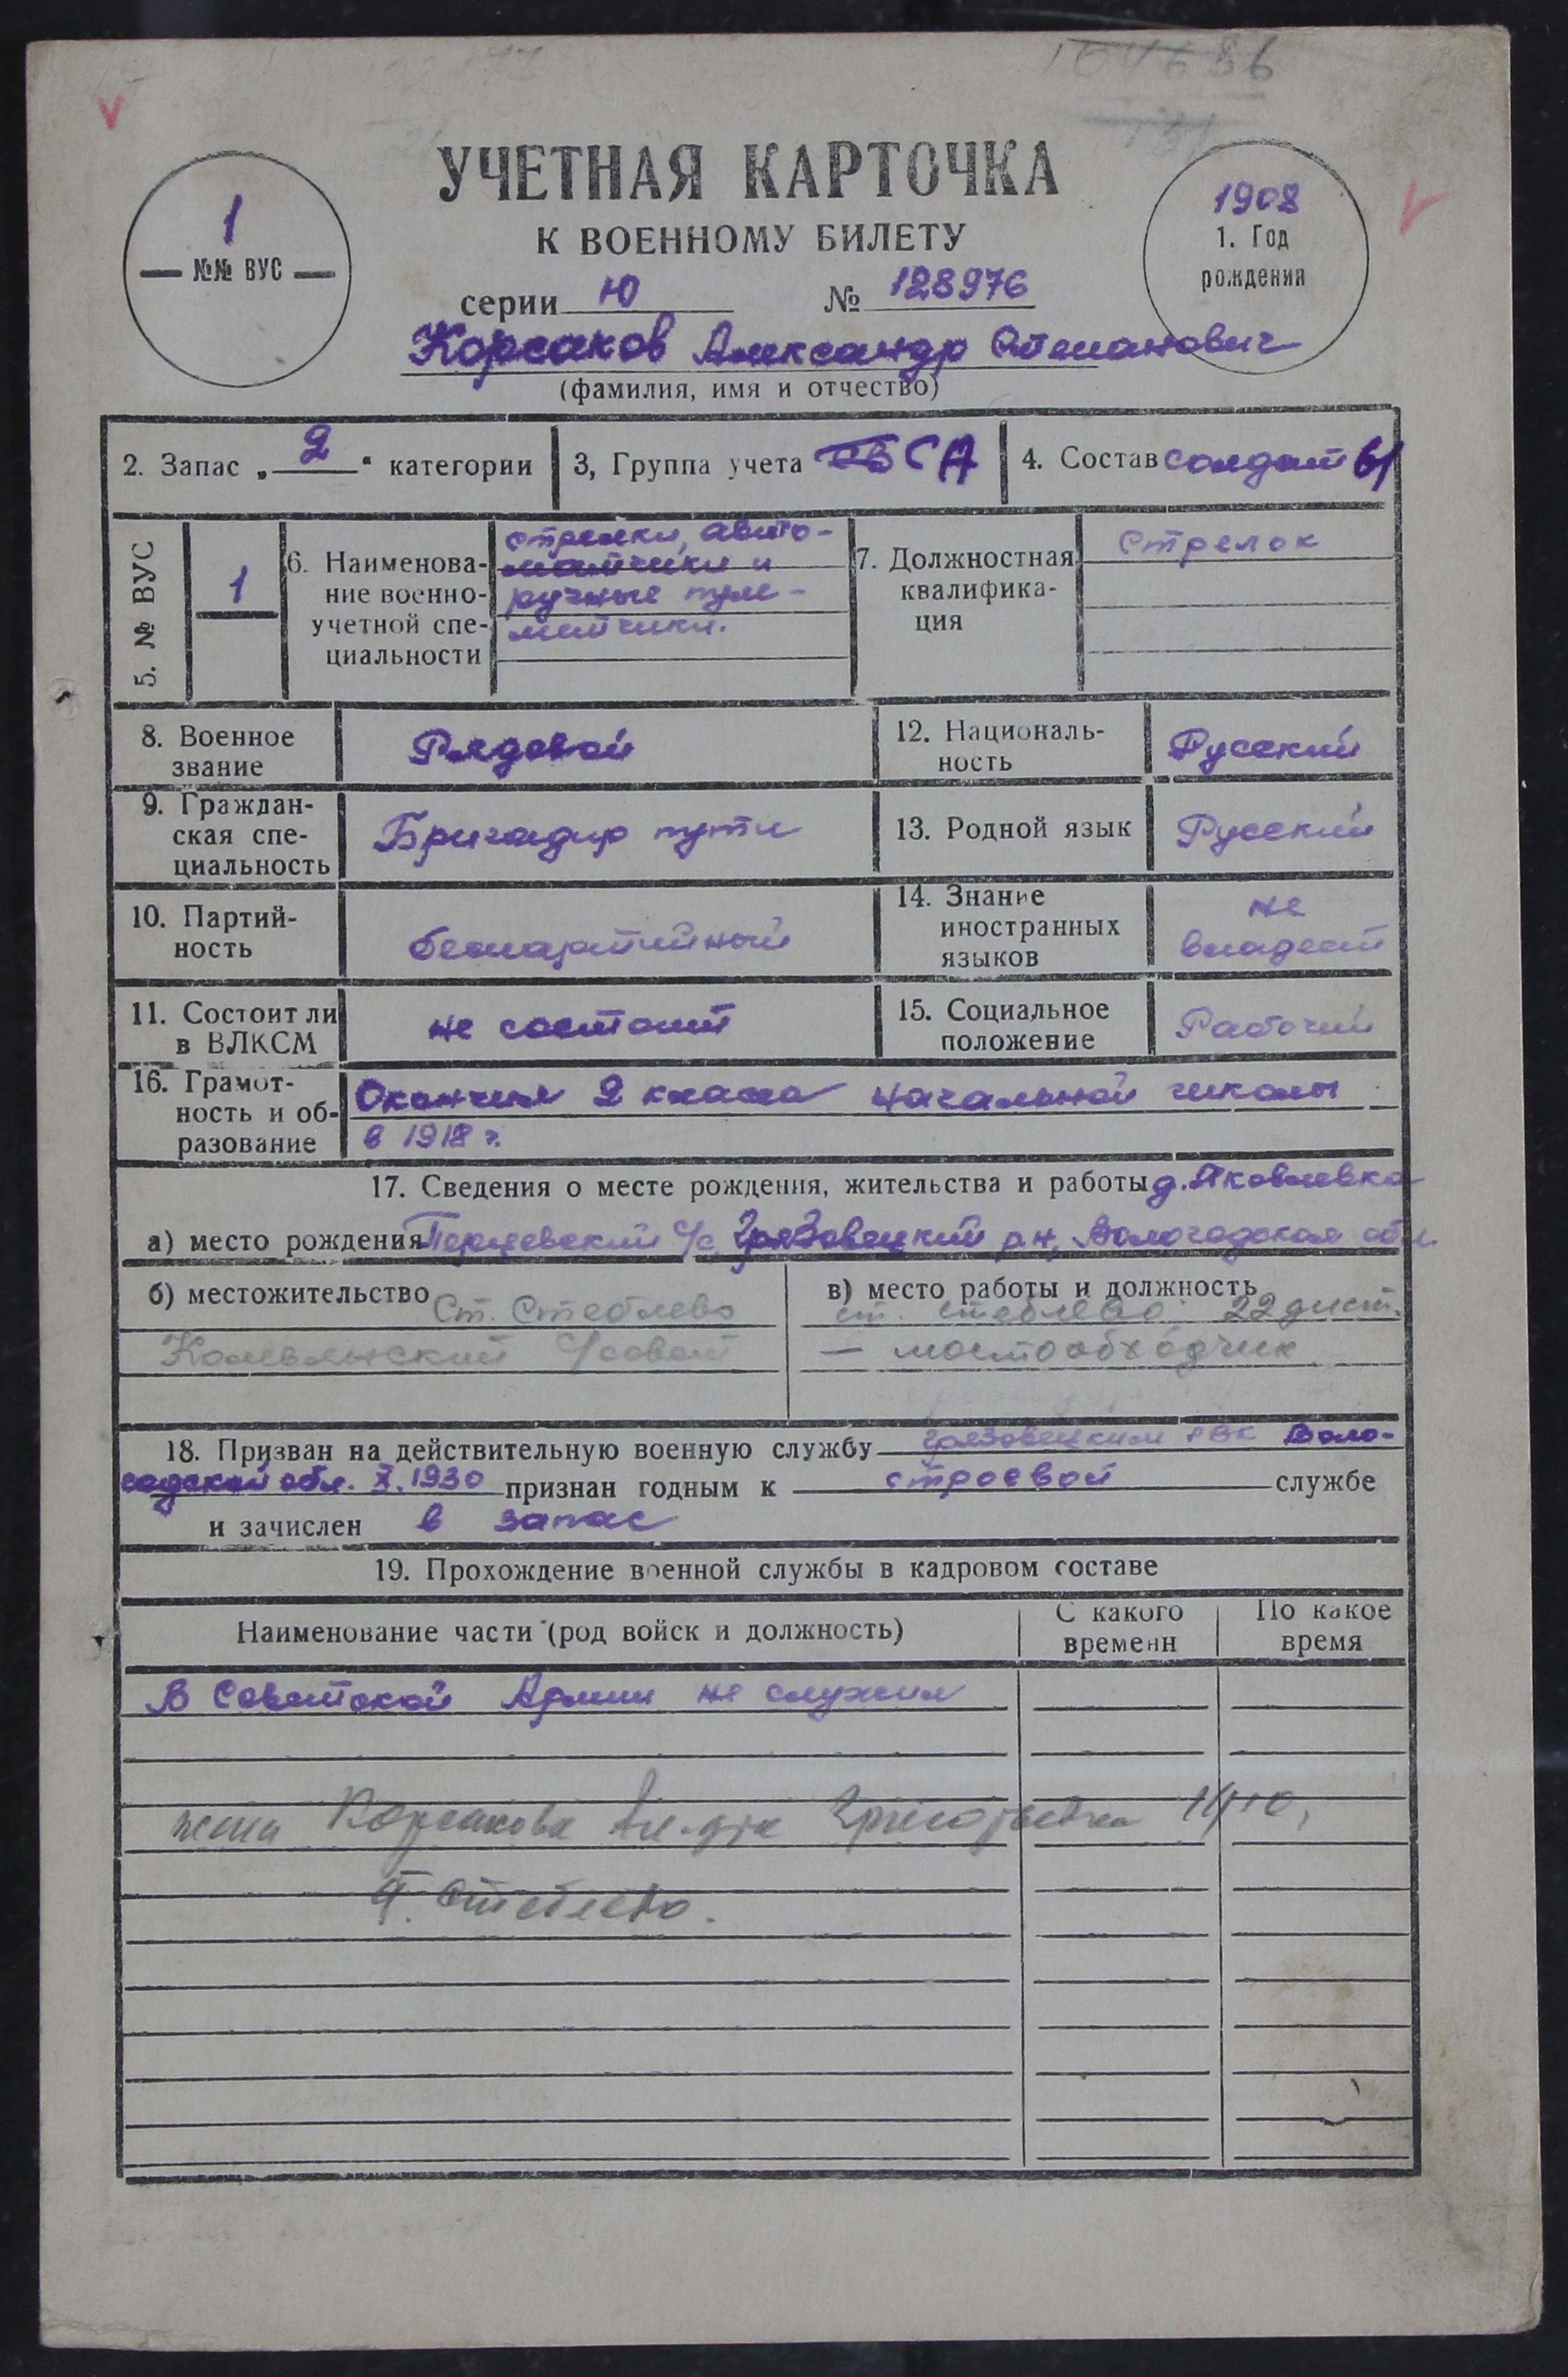 104686
УЧЕТНАЯ КАРТОЧКА
К ВОЕННОМУ БИЛЕТУ
серии Ю № 128976
1
№№ ВУС
1908
1. Год
рождения
Корсаков Александр Степанович
(фамилия, имя и отчество)
2. Запас „ 2 “ категории
3, Группа учета СА
4. Состав солдаты
5. № ВУС
1
6. Наименова-
ние военно-
учетной спе-
циальности
стрелки, авто-
матчики и
ручные пуле-
метчики.
7. Должностная
квалифика-
ция
Стрелок
8. Военное
звание
Рядовой
12. Националь-
ность
Русский
9. Граждан-
ская спе-
циальность
Бригадир пути
13. Родной язык
Русский
10. Партий-
ность
беспартийный
14. Знание
иностранных
языков
не
владеет
11. Состоит ли
в ВЛКСМ
не состоит
15. Социальное
положение
Рабочий
16. Грамот-
ность и об-
разование
Окончил 2 класса начальной школы
в 1918 г.
17. Сведения о месте рождения, жительства и работы д. Яковлевка
а) место рождения Перцевский с/с, Грязовецкий р-н, Вологодская обл.
б) местожительство Ст. Стеблево
С/совет
в) место работы и должность
ст. Стеблево 22 дист.
— мостообходчик
18. Призван на действительную военную службу Грязовецким РВК Воло-
годской обл. X. 1930 признан годным к строевой службе
и зачислен в запас
19. Прохождение военной службы в кадровом составе
Наименование части (род войск и должность)
С какого
времени
По какое
время
В Советской Армии не служил
жена Корсакова Ал-дра Григорьевна
Стеблево.